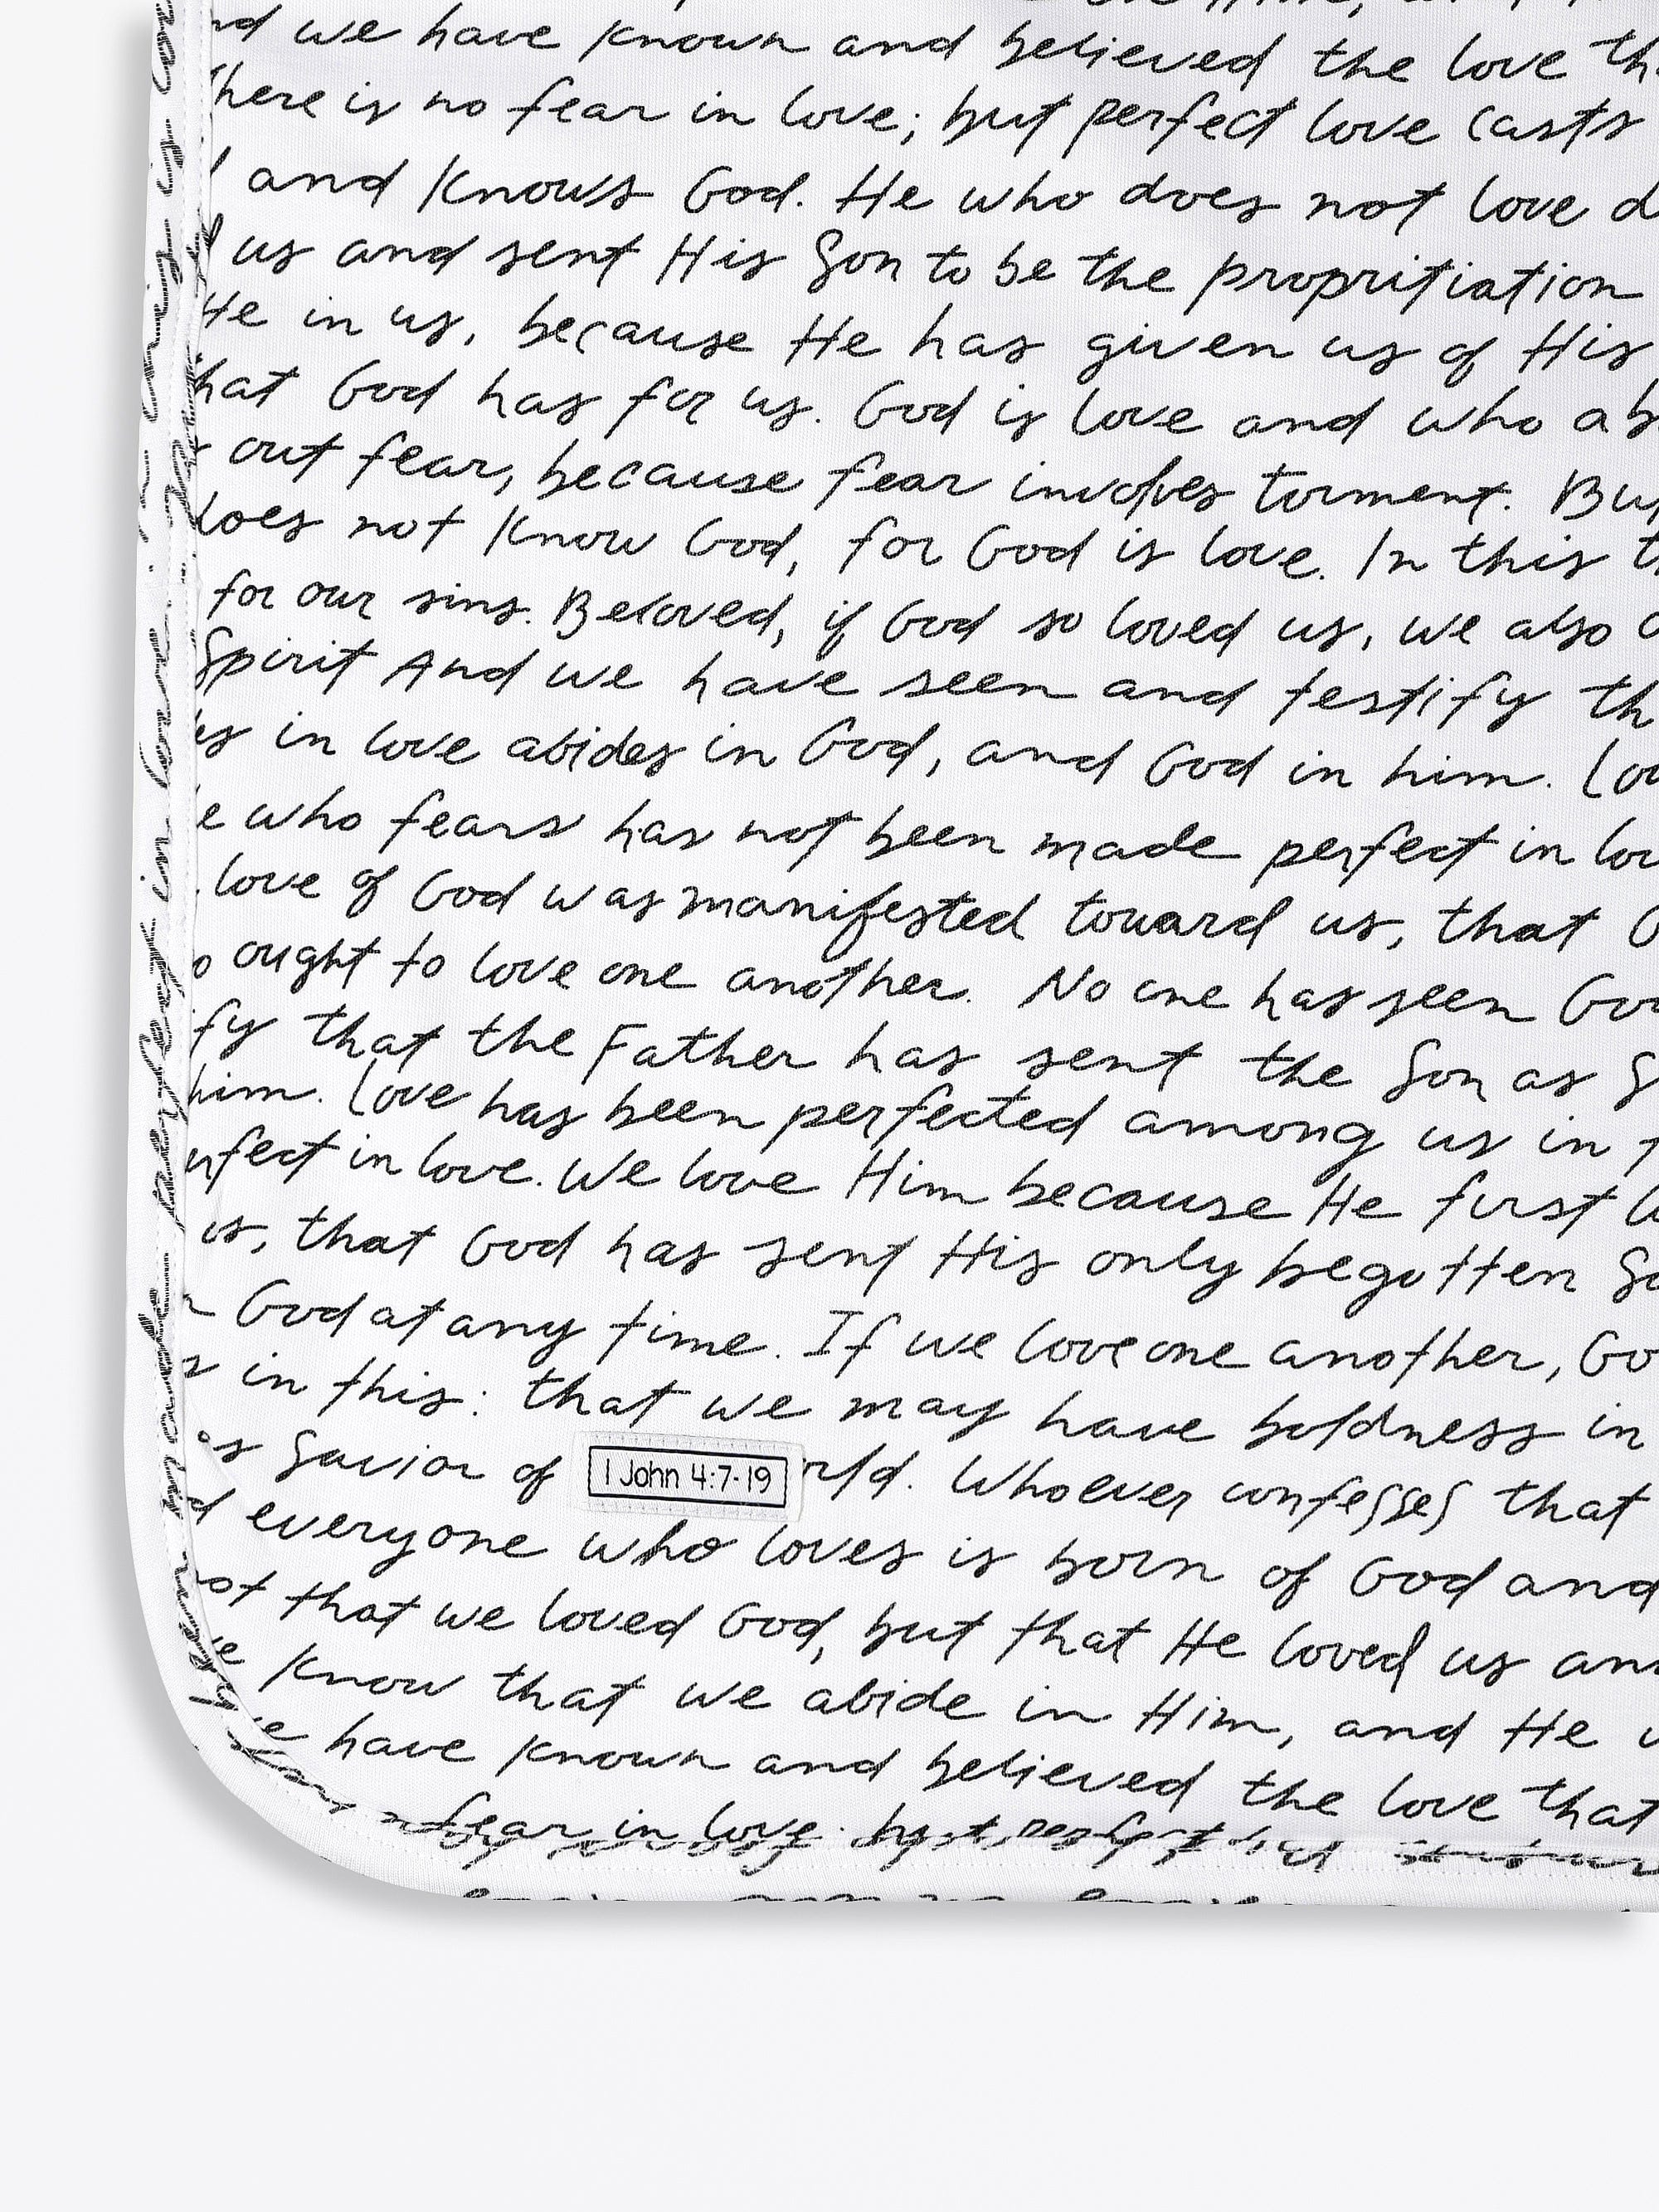 we have known and believed the love
here is no fear in love; but perfect love casts
and knows God. He who does not love d
us and sent His Son to be the propritiation
He in us, because He has given us of His
hat God has for us. God is love and who ab
out fear, because fear involves torment. Bu
does not know God, for God is love. In this t
for our sins. Beloved, if God so loved us, we also o
Spirit And we have seen and testify th
es in love abides in God, and God in him. Lov
e who fears has not been made perfect in lov
love of God was manifested toward us, that G
o ought to love one another. No one has seen God
fy that the Father has sent the Son as S
him. Love has been perfected among us in t
rfect in love. We love Him because He first l
us, that God has sent His only begotten So
n God at any time. If we love one another, Go
s in this: that we may have boldness in
as Savior of 1 John 4:7-19 rld. Whoever confesses that
d everyone who loves is born of God and
ot that we loved God, but that He loved us and
we know that we abide in Him, and He
we have known and believed the love that
fear in love
made perfect in love